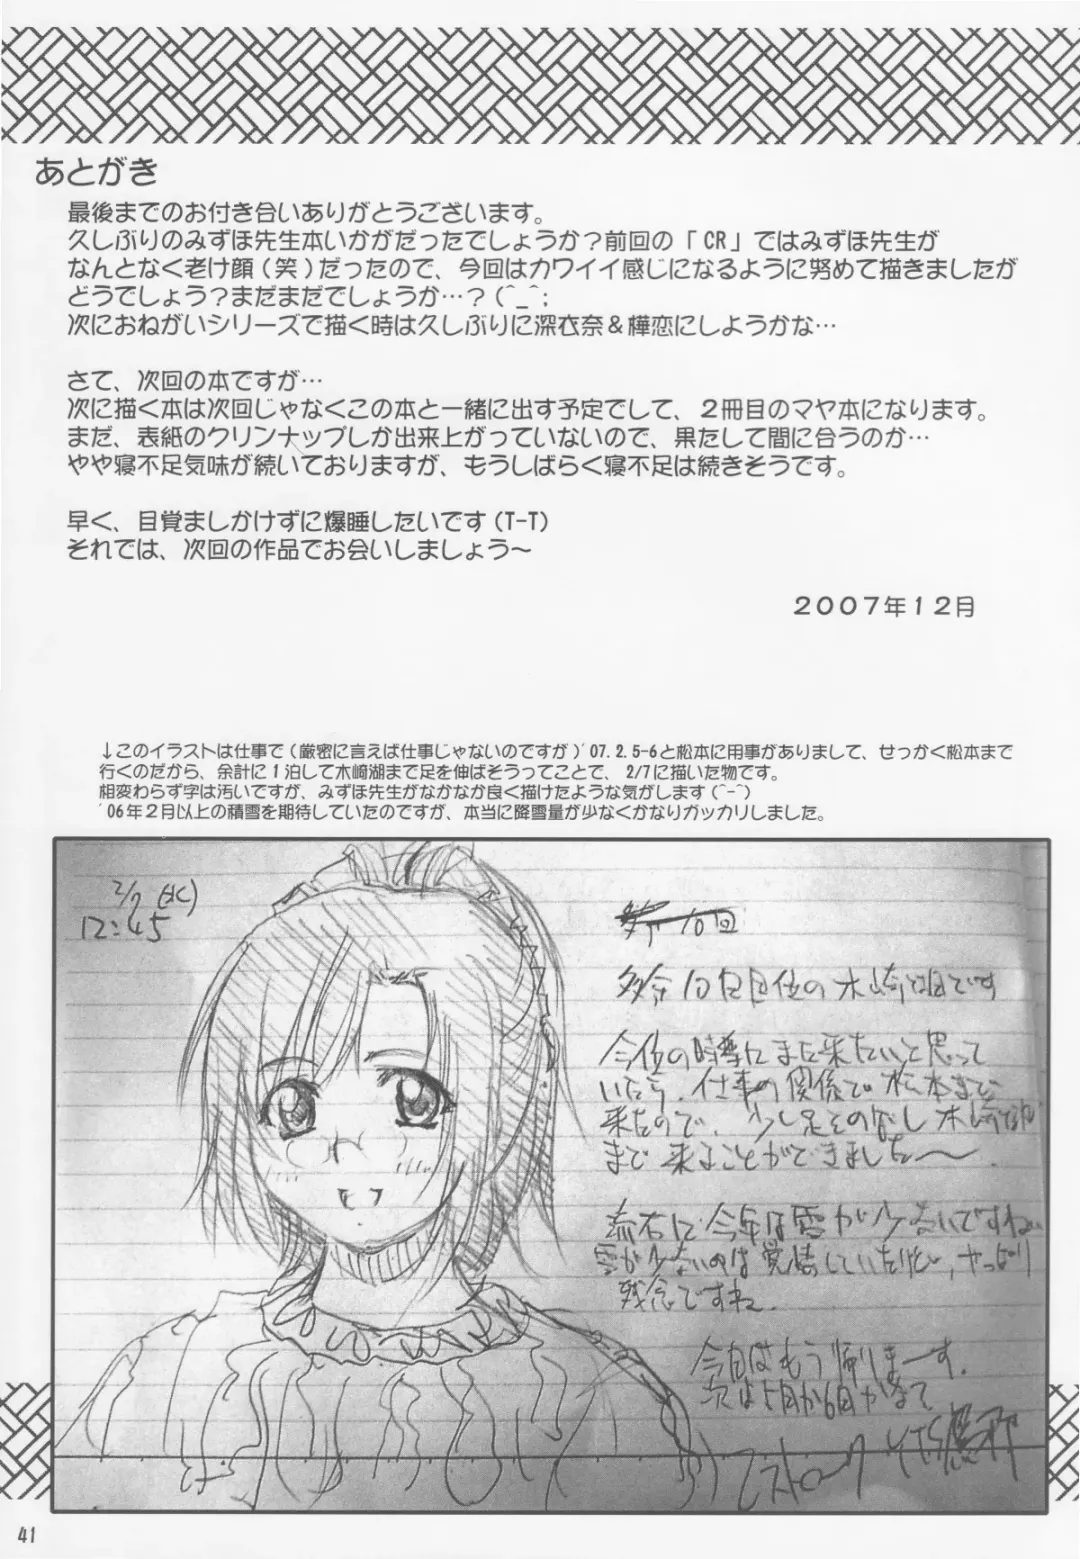 あとがき
最後までのお付き合いありがとうございます。
久しぶりのみずほ先生本いかがだったでしょうか?前回の「CR」ではみずほ先生が
なんとなく老け顔(笑)だったので、今回はカワイイ感じになるように努めて描きましたが
どうでしょう?まだまだでしょうか…?(^_^;
次におねがいシリーズで描く時は久しぶりに深衣奈&樺恋にしようかな…
さて、次回の本ですが…
次に描く本は次回じゃなくこの本と一緒に出す予定でして、2冊目のマヤ本になります。
まだ、表紙のクリンナップしか出来上がっていないので、果たして間に合うのか…
やや寝不足気味が続いておりますが、もうしばらく寝不足は続きそうです。
早く、目覚ましかけずに爆睡したいです(T-T)
それでは、次回の作品でお会いしましょう〜
2007年12月
↓このイラストは仕事で(厳密に言えば仕事じゃないのですが)'07.2.5-6と松本に用事がありまして、せっかく松本まで
行くのだから、余計に1泊して木崎湖まで足を伸ばそうってことで、2/7に描いた物です。
相変わらず字は汚いですが、みずほ先生がなかなか良く描けたような気がします(^-^)
'06年2月以上の積雪を期待していたのですが、本当に降雪量が少なくかなりガッカリしました。
2/7(水)
12:45
10回
多分10回目位の木崎湖です
今位の時季にまた来たいと思って
いたら、仕事の関係で松本まで
来たので、少し足をのばし木崎湖
まで来ることができました〜.
流石に今年は雪が少ないですね
雪が少ないのは覚悟していたけど,やっぱり
残念ですね.
今日はもう帰りまーす.
次は5月か6月かなって
41